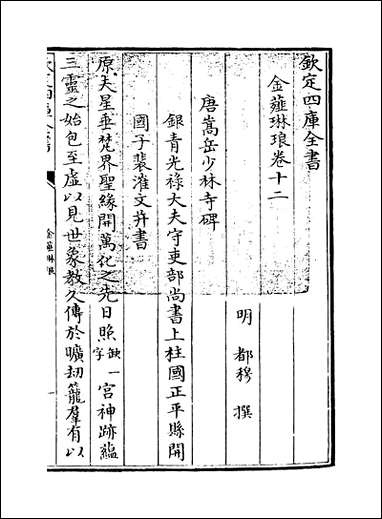 欽定四庫全書
金薤琳琅卷十二
明 都穆 撰
唐嵩岳少林寺碑
銀青光祿大夫守吏部尚書上柱國正平縣開
國子裴漼文并書
原夫星垂梵界聖緣開萬化之先日照缺字一宮神跡蘊
三靈之始包至虛以見世象教久傳於曠劫籠羣有以
金薤琳琅